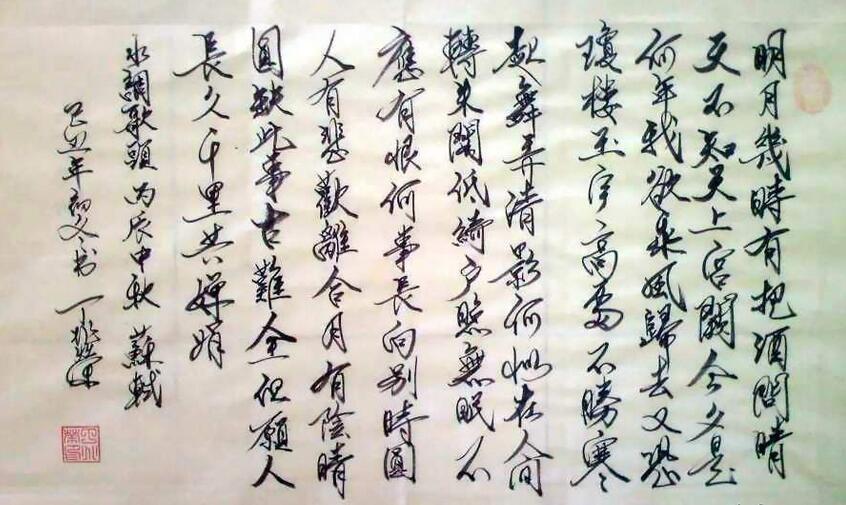 明月幾時有把酒問晴
天不知天上宮闕今夕是
何年我欲乘風歸去又恐
瓊楼玉宇高處不勝寒
起舞弄清影何似在人间
轉朱閣低綺户照無眠不
應有恨何事長向别時圓
人有悲歡離合月有陰晴
圓缺此事古難全但願人
長久千里共嬋娟
水調歌頭 丙辰中秋 蘇軾
己丑年初冬书